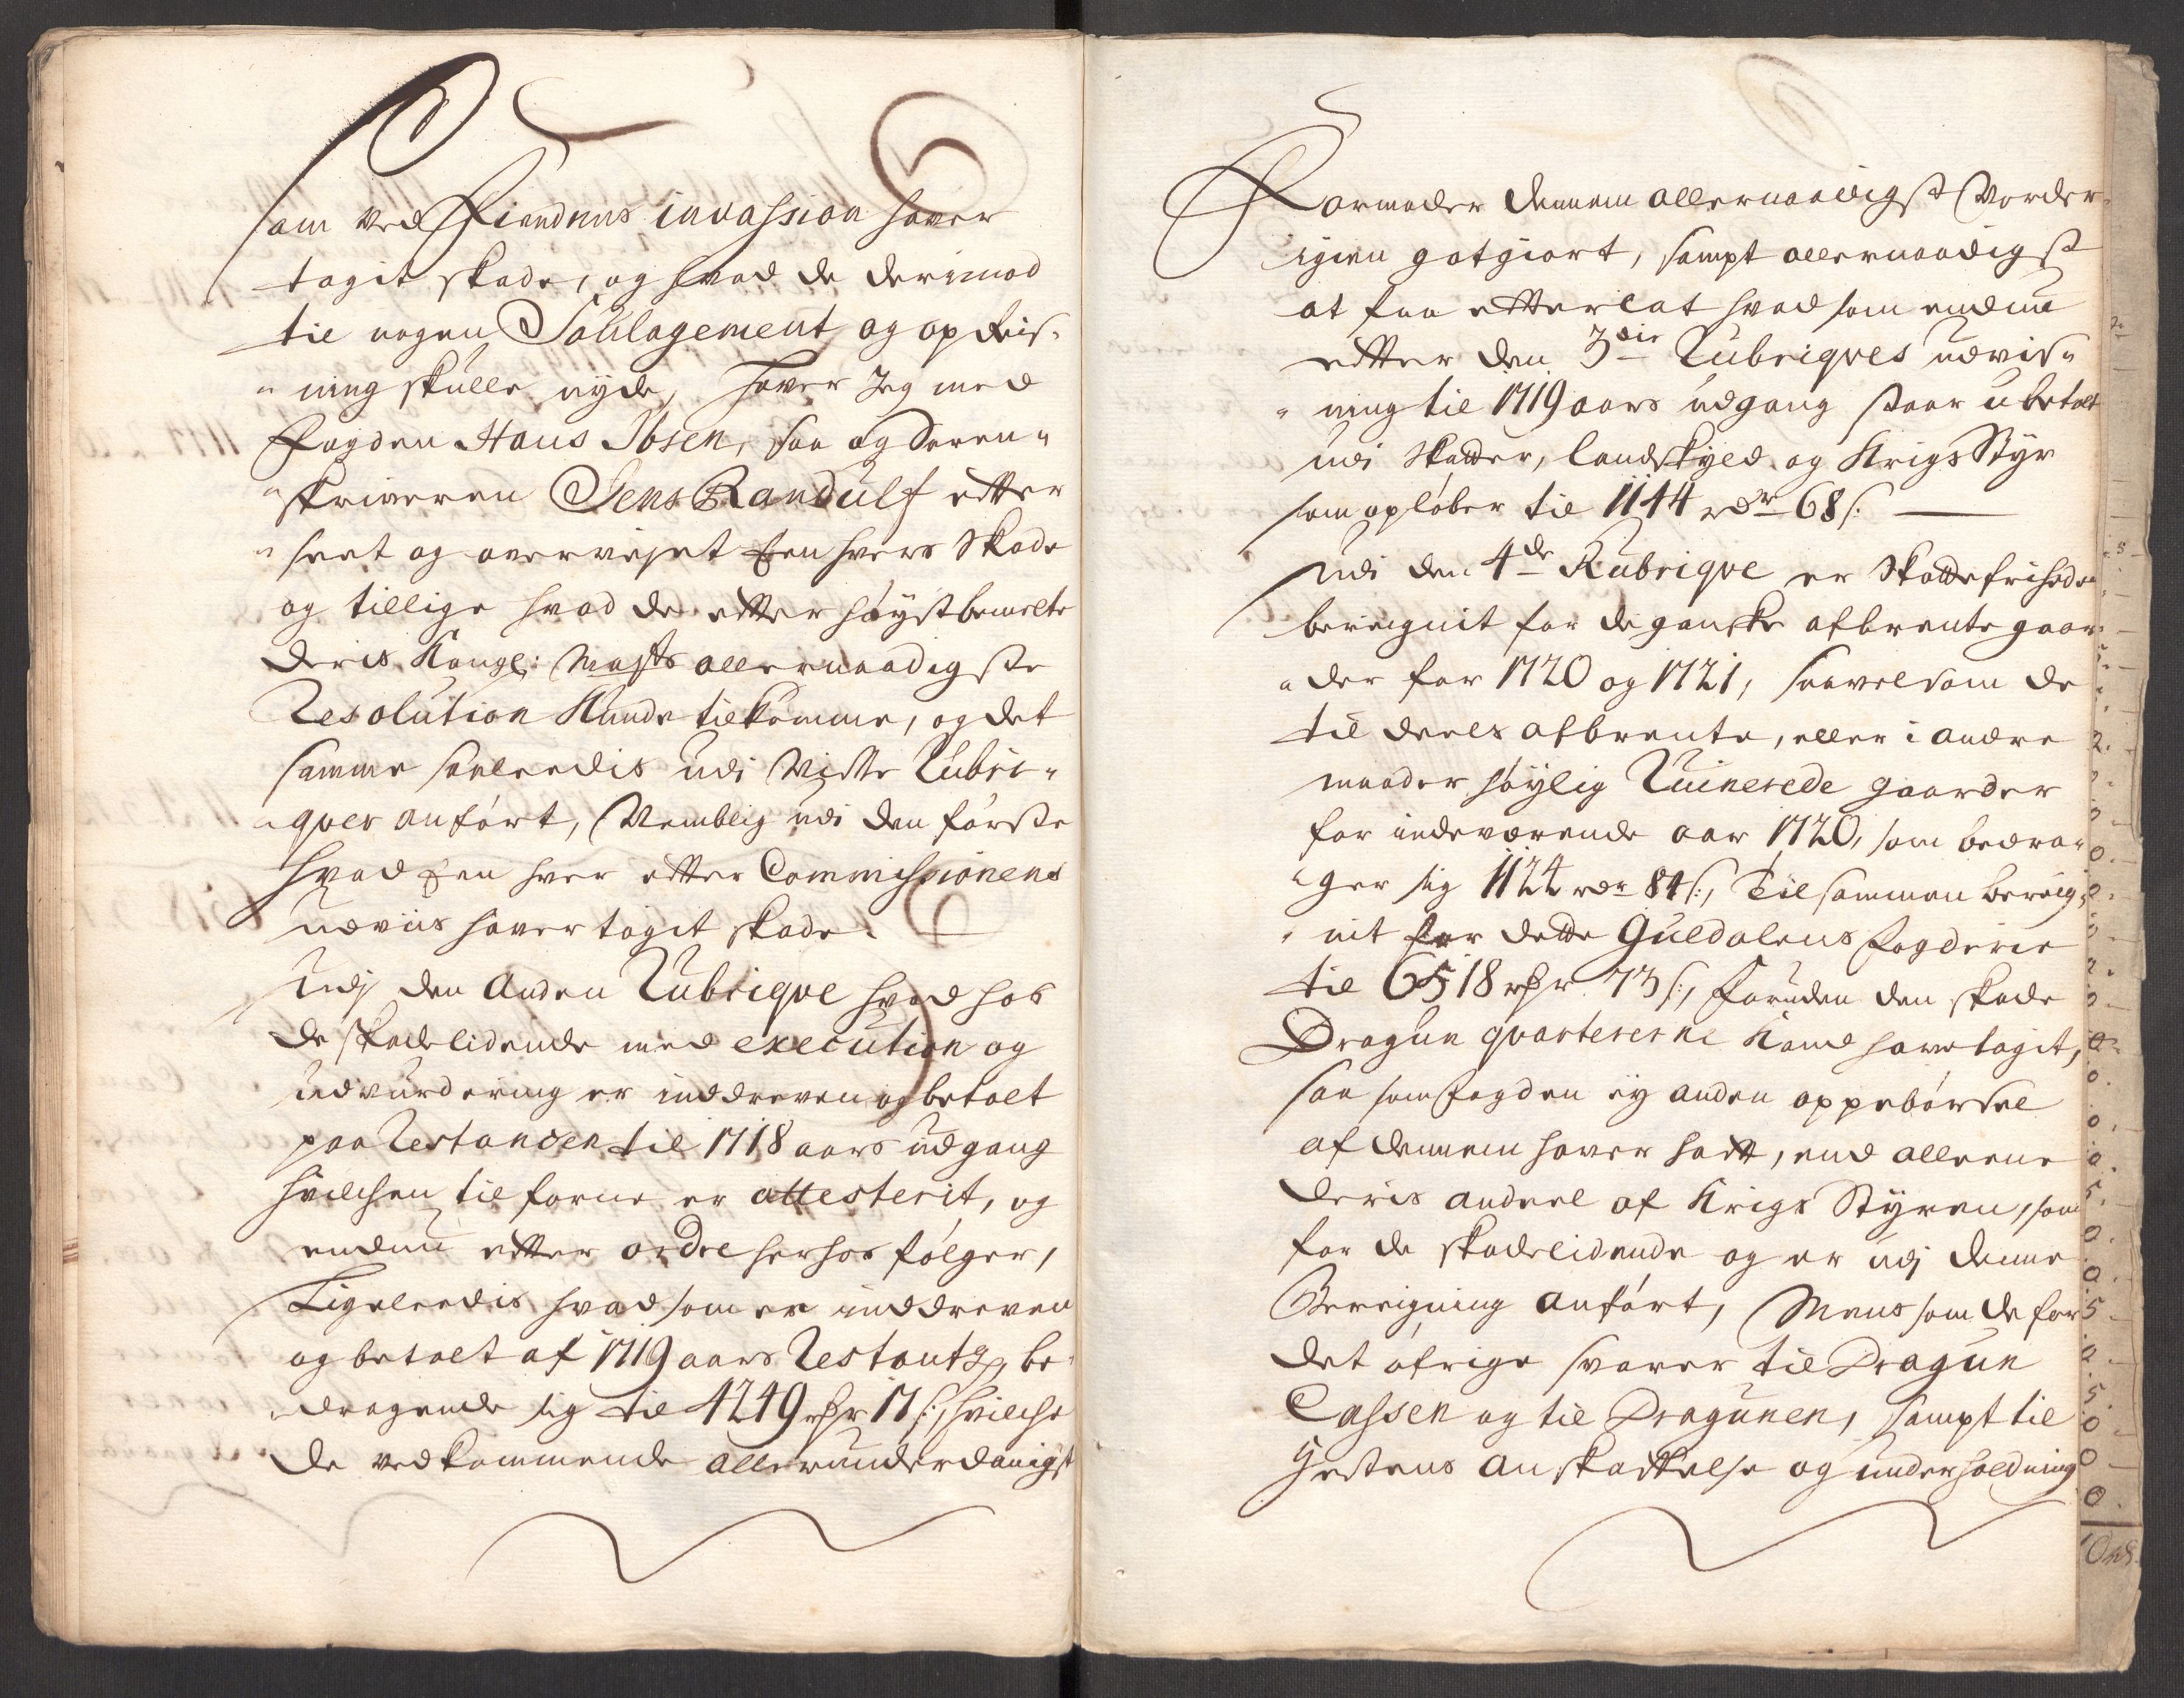 som ved Fiendens invassion hafver
tagit skade, og hvad de derimod
til nogen Soulagement og opreis-
"ning skulle nyde, hafver Jeg med
Fogden Hans Ibsen, saa og Soren-
"skriveren Jens Randulf efter
"seet og overvejet Een hvers Skade
og tillige hvad de efter høystbemelte
deris Kongl: Majts allernaadigste
Resolution kunde tilkomme, og det
samme saaledis udi Visse Rubri-
"qver anført, Nemblig udi den første
hvad Een hver efter Commissionens
udviis hafver tagit skade.
Udj den Anden Rubriqve hvad hos
de skadelidende med execution og
udvurdering er inddreven og betalt
paa Restancen til 1718 aars udgang
hvilchen tilforne er attesterit, og
endnu efter ordre herhos følger,
Ligeleedis hvad som er inddreven
og betalt af 1719 aars Restantz, be-
"dragende sig til 4249 rdr 17 s:, hvilche
de vedkommende allerunderdanigst
Formoder dennem allernaadigst Vorder
igien gotgiort, sampt allernaadigst
at faa efterlat hvad som endnu
efter den 3die Rubriqves udvis-
"ning til 1719 aars udgang staar ubetalt
udi Skatter, landskyld og Krigs Styr
som opløber til 1144 rdr 68 s:
Udi den 4de Rubriqve er Skattefriheden
bereignit for de ganske afbrente gaar-
"der for 1720 og 1721, saavelsom de
til deels afbrente, eller i andre
maader høylig Ruinerede gaarder
for indeværende aar 1720, som bedra-
"ger sig 1124 rdr 84 s:, Tilsammen bereig-
"nit for dette Guldalens fogderie
til 6518 rdr 73 s:, foruden den skade
Dragun qvartererne kand have tagit,
saa som fogden ey anden oppebørsel
af dennem hafver hatt, end alleene
deris andeel af Krigs Styren, som
for de skadelidende og er udj denne
Bereigning anført, Mens som de for
det øfrige svarer til Dragun
Cassen og til Dragunen, sampt til
Hestens anskaffelse og underholdning